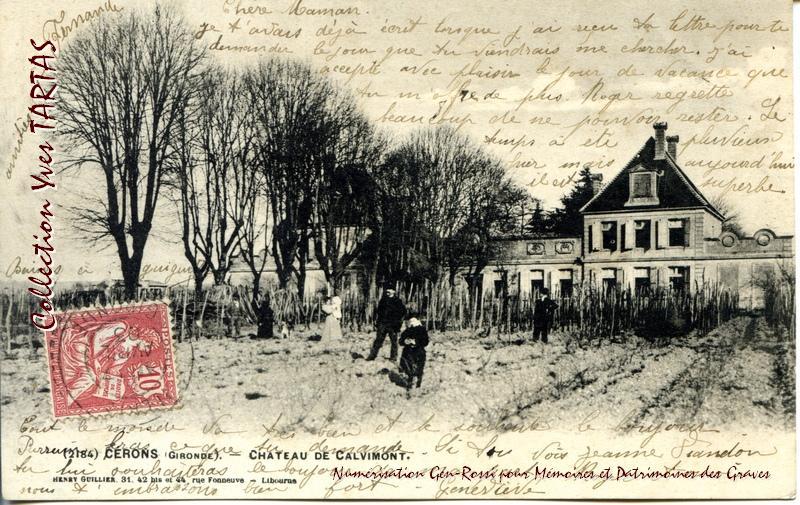 Chère Maman.
je t'avais déjà écrit lorsque j'ai reçu ta lettre pour te
demander le jour que tu viendrais me chercher. J'ai
accepté avec plaisir le jour de vacance que
tu m'offre de plus. Roger regrette
beaucoup de ne pouvoir rester. Le
temps a été pluvieux
hier mais aujourd'hui
il est superbe
Fernande
Collection Yves TARTAS
10
Tout le monde va très bien et te souhaite le bonjour
ce que tu demande. Si tu vois Jeanne
(2184) CÉRONS (GIRONDE). CHATEAU DE CALVIMONT.
tu lui souhaiteras le bonjour
Numérisation Gén-Rossi pour Mémoires et Patrimoines des Graves
HENRY GUILLIER. 31, 42 bis et 44, rue Fonneuve — Libourne
nous t'embrassons bien fort - Geneviève